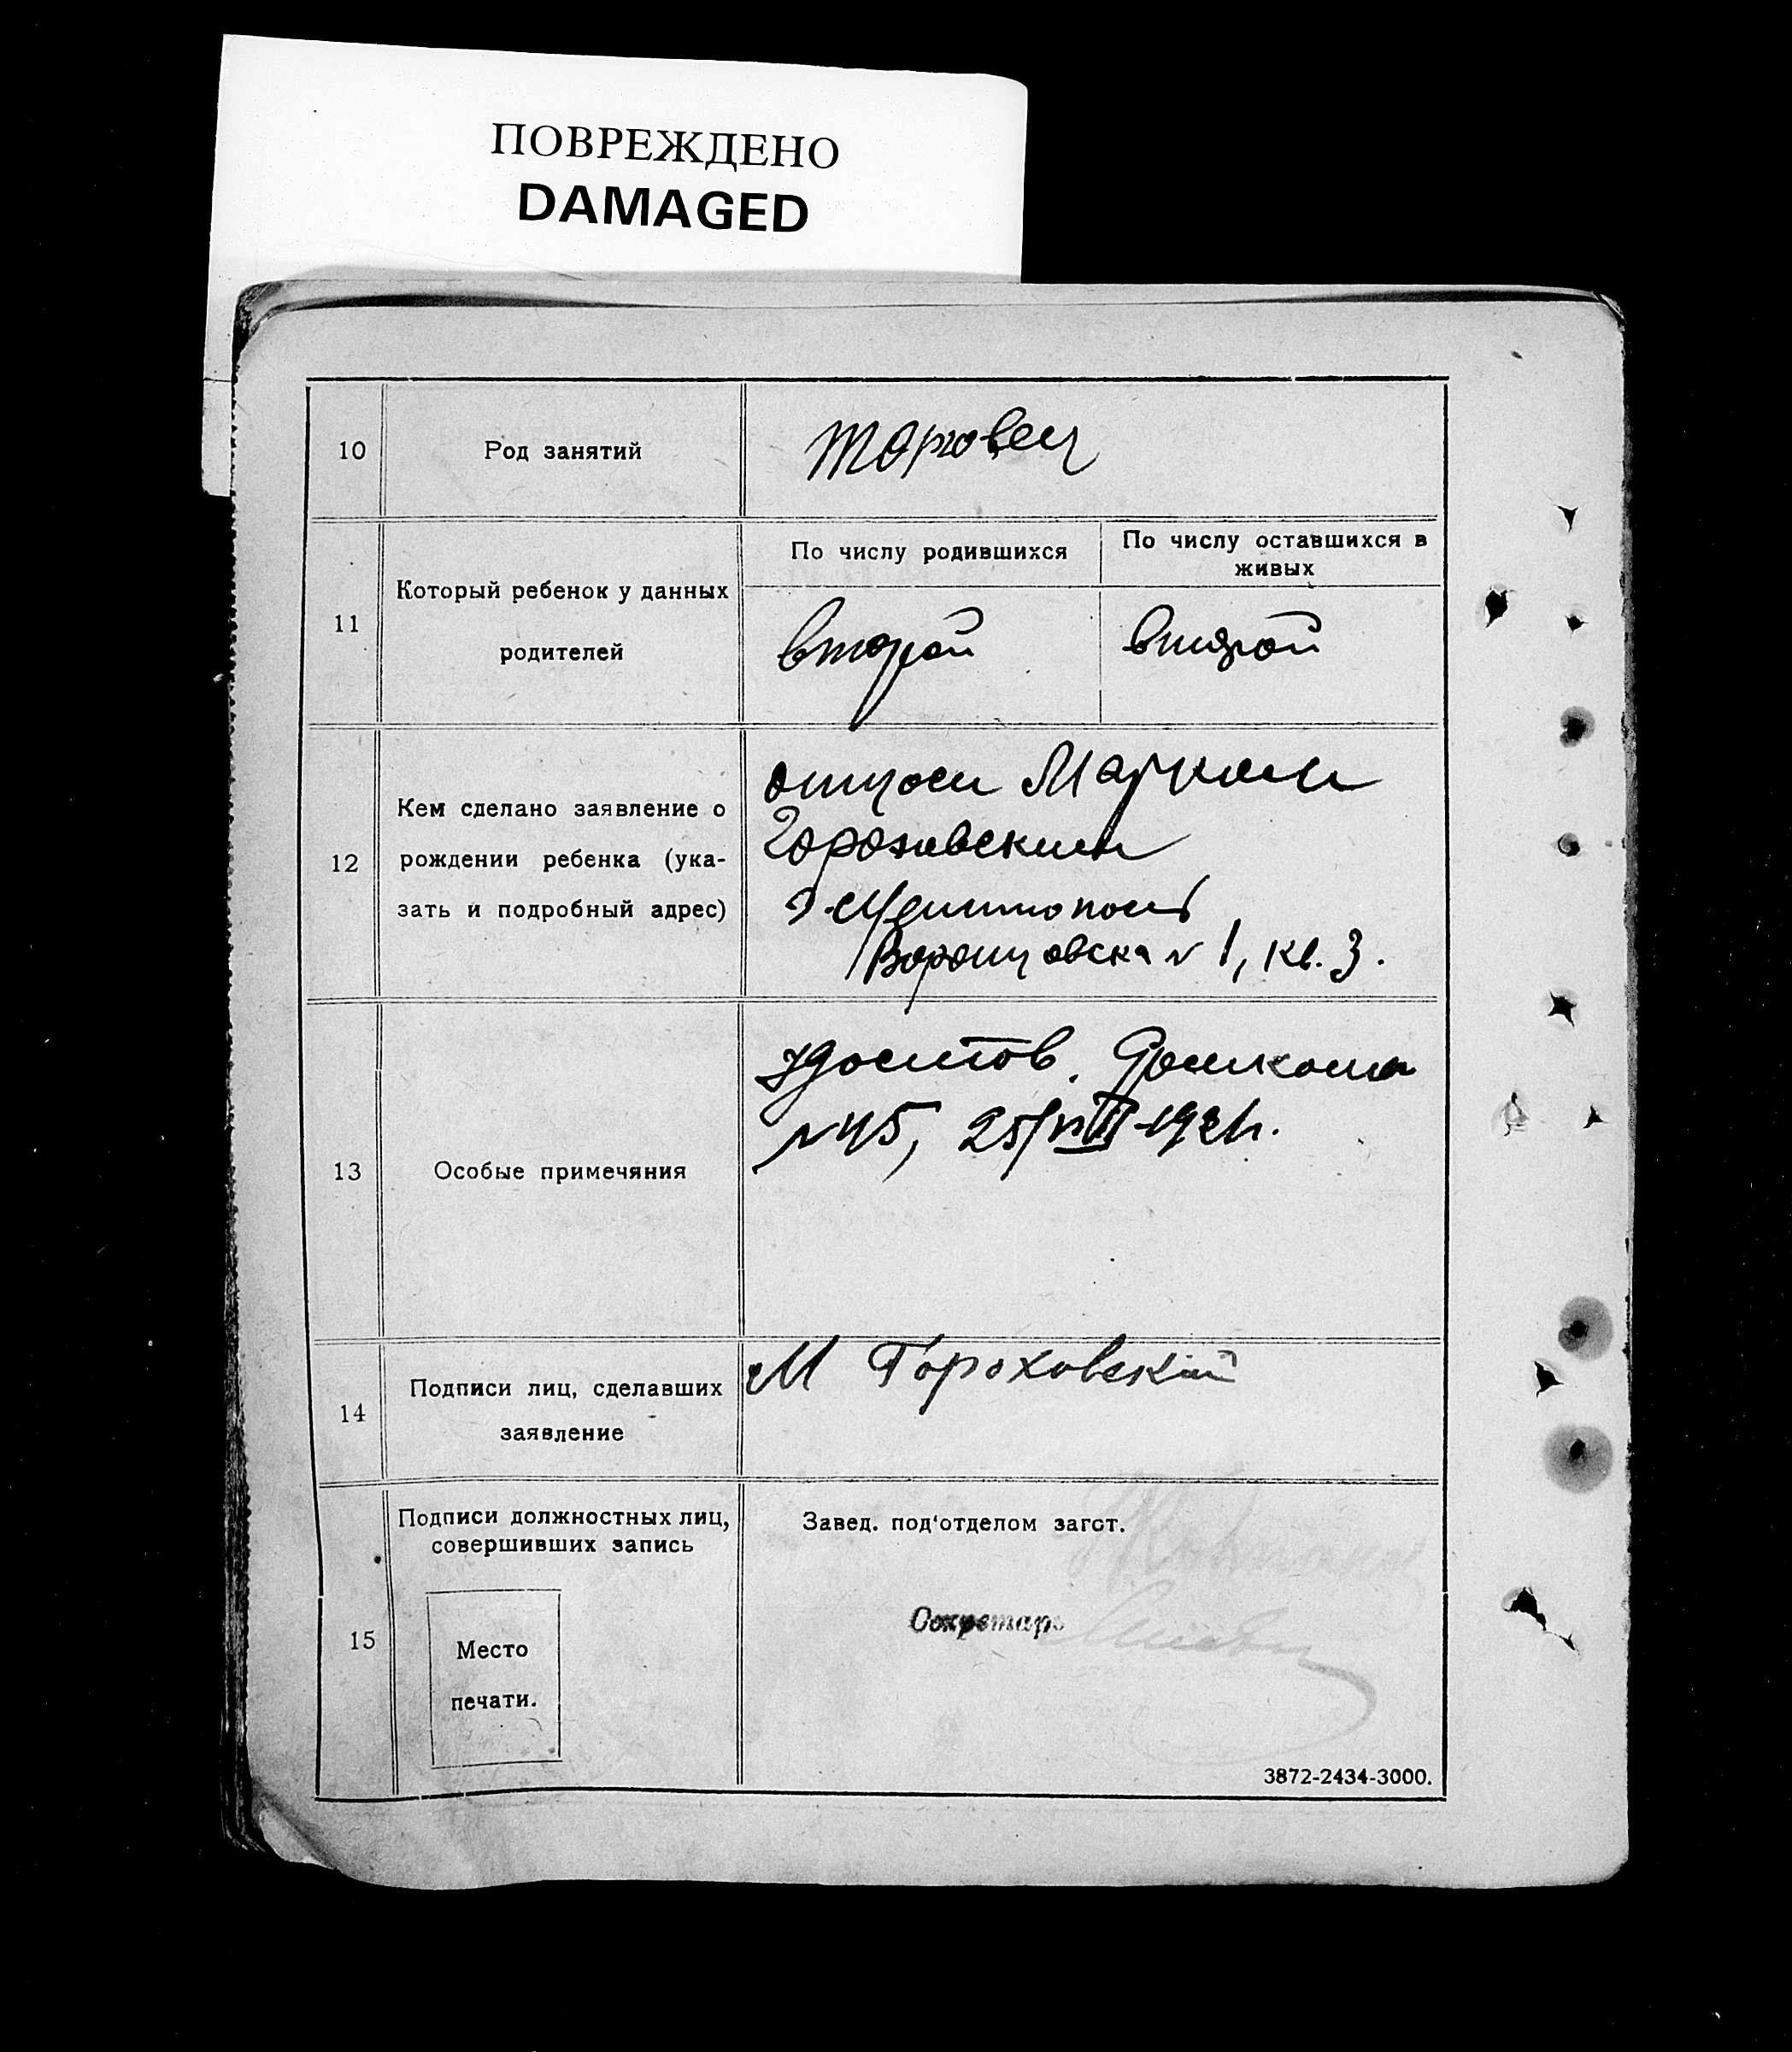 ПОВРЕЖДЕНО
DAMAGED
10
Род занятий
торговец
11
Который ребенок у данных
родителей
По числу родившихся
По числу оставшихся в
живых
второй
второй
12
Кем сделано заявление о
рождении ребенка (ука-
зать и подробный адрес)
отцом Марком
Гороховским
г. Мелитополь
Воронцовская № 1, кв. 3.
13
Особые примечяния
удостов. Домкома
№ 45, 25/VIII-1921г.
14
Подписи лиц, сделавших
заявление
М Гороховский
15
Подписи должностных лиц,
совершивших запись
Место
печати.
Завед. под‘отделом загст.
Секретарь
3872-2434-3000.